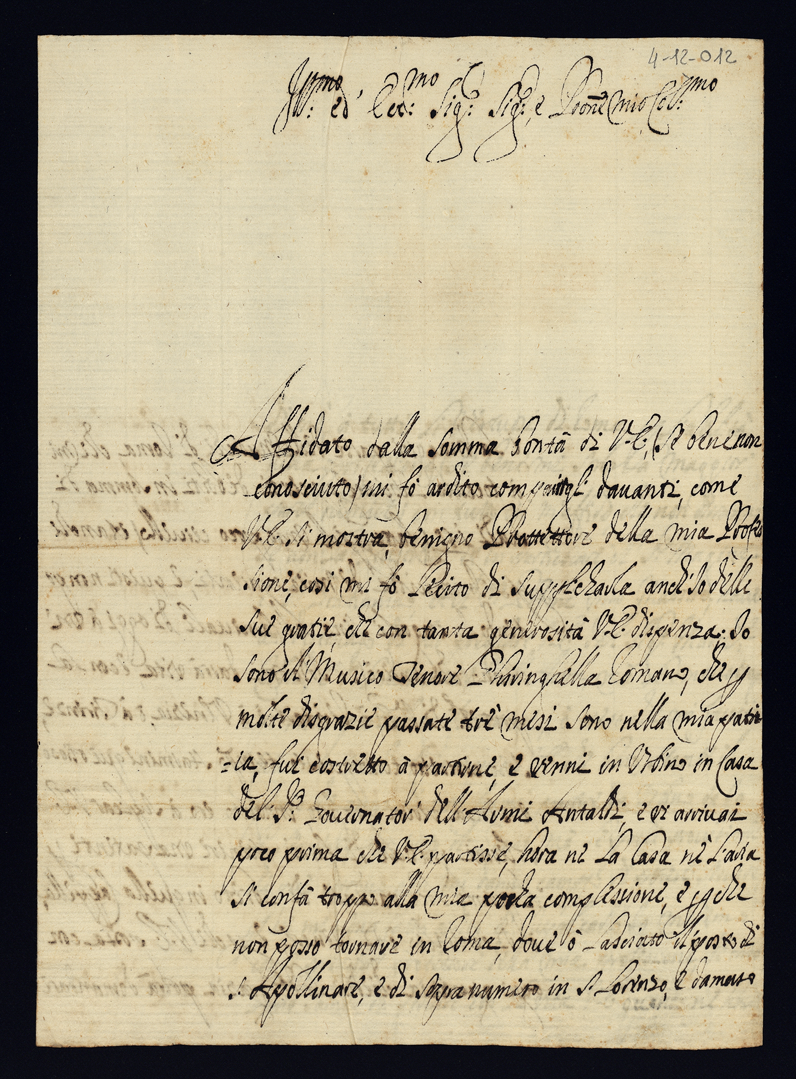 4-12-012
Ill.mo ed Ecc.mo Sig.r Sig.r, e Prone mio Col.mo
Affidato dalla somma bontà di V.E. (se bene non
conosciuto) mi fò ardito comparirgli davanti, come
V.E. si mostra, benigno Prottettore della mia Profes
sione, così mi fò lecito di supplicharla anch'io delle
sue gratie, che con tanta generosità V.E. dispenza. Io
sono il Musico Tenore Romano, che p
molte disgrazie passate trè mesi sono nella mia patr
=ia, fui costretto à partire, e venni in Urbino in Casa
del S.r Governator dell'Armi Antaldi, e vi arrivai
poco prima che V.E. partisse, hora nè la Casa nè l'aria
si confà troppo alla mia pocha complessione, e p che
non posso tornare in Roma, dove ò lasciato il posto di
S. Apollinare, e di sopranumero in S. Lorenzo, e damaso